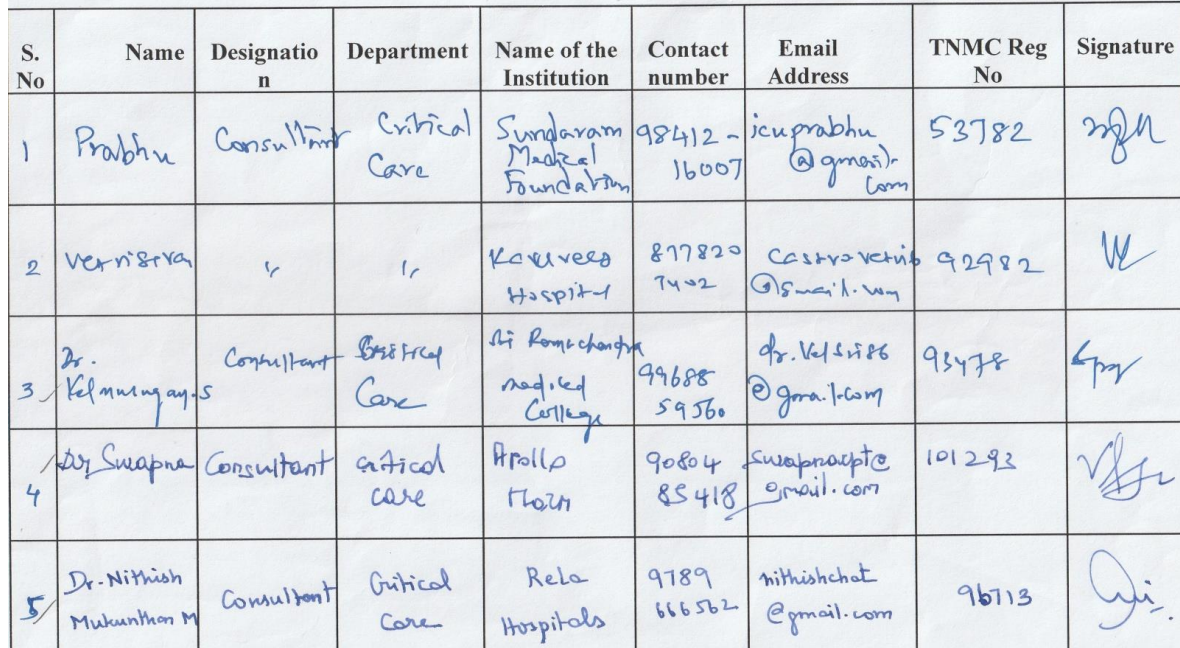 S. No Name Designatio n Department Name of the Institution Contact number Email Address TNMC Reg No Signature
1 Prabhu Consultant Critical Care Sundaram Medical Foundation 98412-16007 icuprabhu @gmail.com 53782
2 " " Hospital 877820 7402 92982
3 Dr. Velmurugan-S Consultant Critical Care Sri Ramachandra medical College 99688 59560 dr.velsri86 @gmail.com 93478
4 Dr Swapna Consultant critical care Apollo Main 90804 85418 swapnacpt@ gmail.com 101293
5 Dr. Nithish Mukunthan M Consultant Critical Care Rela Hospitals 9789 666562 nithishchat @gmail.com 96713